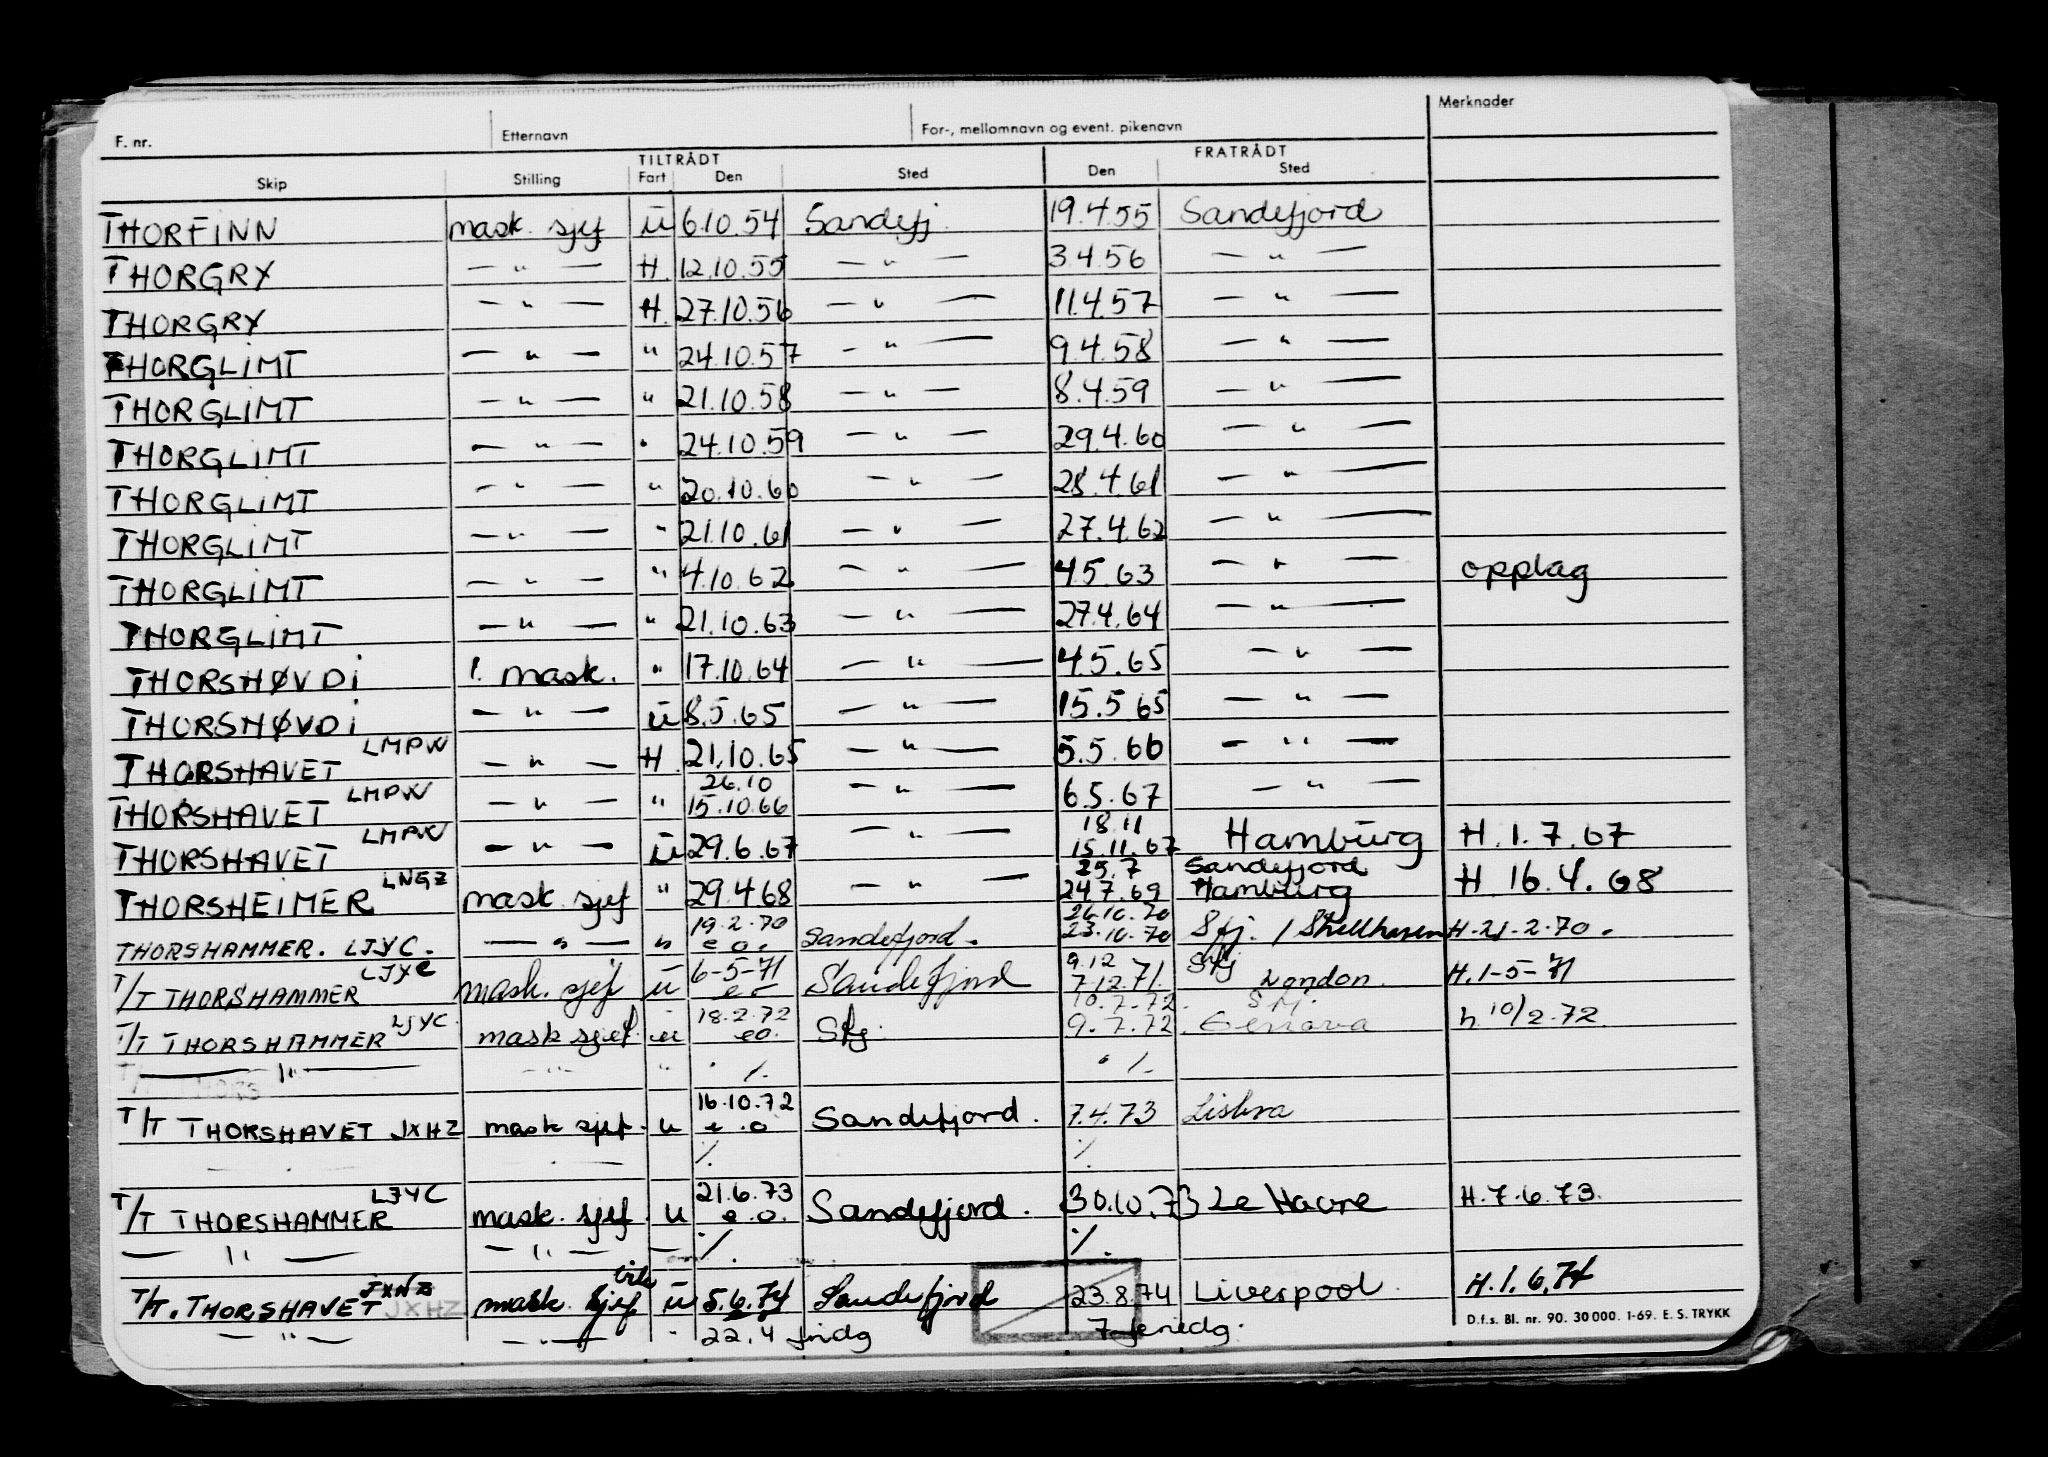 F. nr. Etternavn For-, mellomnavn og event. pikenavn Merknader
TILTRÅDT FRATRÅDT
Skip Stilling Fart Den Sted Den Sted
THORFINN mask. sjef ū 6.10.54 Sandefj. 19.4.55 Sandefjord
THORGRY — " — H. 12.10.55 — " — 3.4.56 — " —
THORGRY — " — H. 27.10.56 — " — 11.4.57 — " —
THORGLIMT — " — " 24.10.57 — " — 9.4.58 — " —
THORGLIMT — " — " 21.10.58 — " — 8.4.59 — " —
THORGLIMT — " — " 24.10.59 — " — 29.4.60 — " —
THORGLIMT — " — " 20.10.60 — " — 28.4.61 — " —
THORGLIMT — " — " 21.10.61 — " — 27.4.62 — " —
THORGLIMT — " — " 4.10.62 — " — 4.5.63 — " — opplag
THORGLIMT — " — " 21.10.63 — " — 27.4.64 — " —
THORSHØVDI 1. mask. " 17.10.64 — " — 4.5.65 — " —
THORSHØVDI — " — ū 8.5.65 — " — 15.5.65 — " —
THORSHAVET LMPW — " — H. 21.10.65 — " — 5.5.66 — " —
26.10
THORSHAVET LMPW — " — " 15.10.66 — " — 6.5.67 — " —
18.11
THORSHAVET LMPW — " — ū 29.6.67 — " — 15.11.67 Hamburg H. 1.7.67
25.7 Sandefjord
THORSHEIMER LNGZ mask. sjef " 29.4.68 — " — 24.7.69 Hamburg H 16.4.68
19.2.70 26.10.70
THORSHAMMER. LJYC. — " — " e.o. Sandefjord. 23.10.70 Sfj. / Shellhaven H-21-2-70.
LJYC 6-5-71 9.12 Sfj
T/T THORSHAMMER mask. sjef ū eo Sandefjord 7.12.71. London. H.1-5-71
LJYC 18.2.72 10.7.72. Sfj.
T/T THORSHAMMER mask sjef. ū eo. Sfj. 9.7.72 Genova h 10/2.72.
— " — — " — " ·/. ·/.
16.10.72
T/T THORSHAVET JXHZ mask sjef. u e.o Sandefjord. 7.4.73 Lisboa
·/. ·/.
LJYC 21.6.73
T/T THORSHAMMER mask. sjef. u e.o. Sandefjord. 30.10.73 Le Havre H.7.6.73.
— " — — " — — ·/. ·/.
JXHZ
T/T. THORSHAVET JXHZ mask. sjef ū 5.6.74 Sandefjord 23.8.74 Liverpool. H.1.6.74
— " — — " — " 22.4 fridg 7 feriedg.
D.f.s. Bl. nr. 90. 30 000. 1-69. E. S. TRYKK